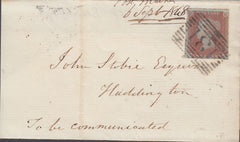 6 Sept 1848
John Stobie Esquire
Haddington
To be communicated